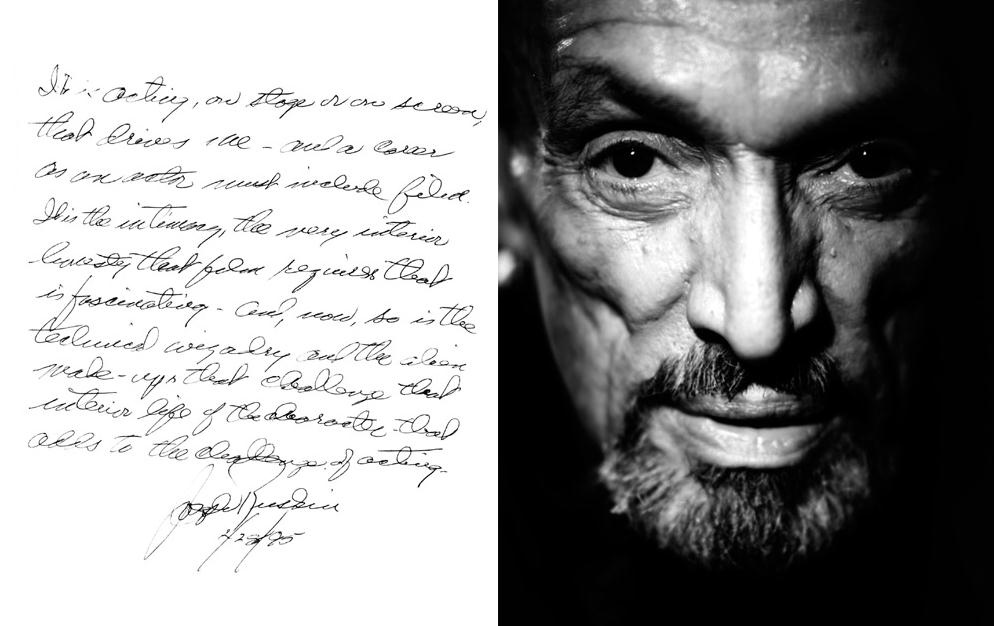 It is acting, on stage or on screen,
that drives me - and a career
as an actor must include film.
It is the intimacy, the very interior
honesty that film requires that
is fascinating - and, now, so is the
technical wizardry and the alien
make-ups that challenge that
interior life of the character - that
adds to the challenge of acting.
Joseph Ruskin
2/23/95